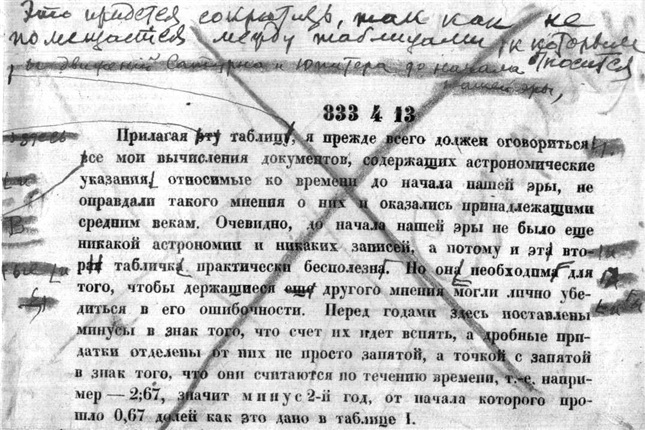 Это придется сократить, так как не
помещается между таблицами, к которым
движений Сатурна и Юпитера до начала относится
нашей эры,
833 4 13
здесь
Прилагая эту таблицу, я прежде всего должен оговориться
все мои вычисления документов, содержащих астрономические
указания, относимые ко времени до начала нашей эры, не
оправдали такого мнения о них и оказались принадлежащими
средним векам. Очевидно, до начала нашей эры не было еще
никакой астрономии и никаких записей, а потому и эта вто-
рая табличка практически бесполезна. Но она необходима для
того, чтобы держащиеся еще другого мнения могли лично убе-
диться в его ошибочности. Перед годами здесь поставлены
минусы в знак того, что счет их идет вспять, а дробные при-
датки отделены от них не просто запятой, а точкой с запятой
в знак того, что они считаются по течению времени, т.-е. напри-
мер — 2;67, значит минус 2-й год, от начала которого про-
шло 0,67 долей как это дано в таблице I.